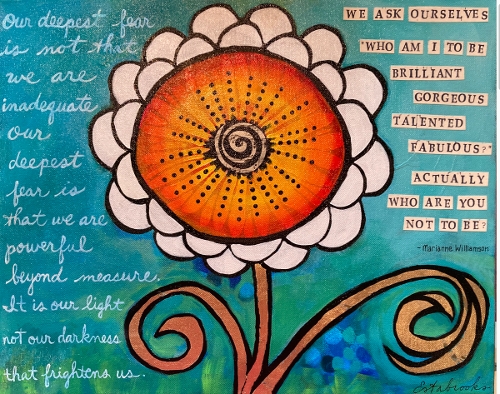 Our deepest fear
is not that
we are
inadequate
Our
deepest
fear is
that we are
powerful
beyond measure.
It is our light
not our darkness
that frightens us.
WE ASK OURSELVES
"WHO AM I TO BE
BRILLIANT
GORGEOUS
TALENTED
FABULOUS?"
ACTUALLY
WHO ARE YOU
NOT TO BE?
-Marianne Williamson
Estabrooks